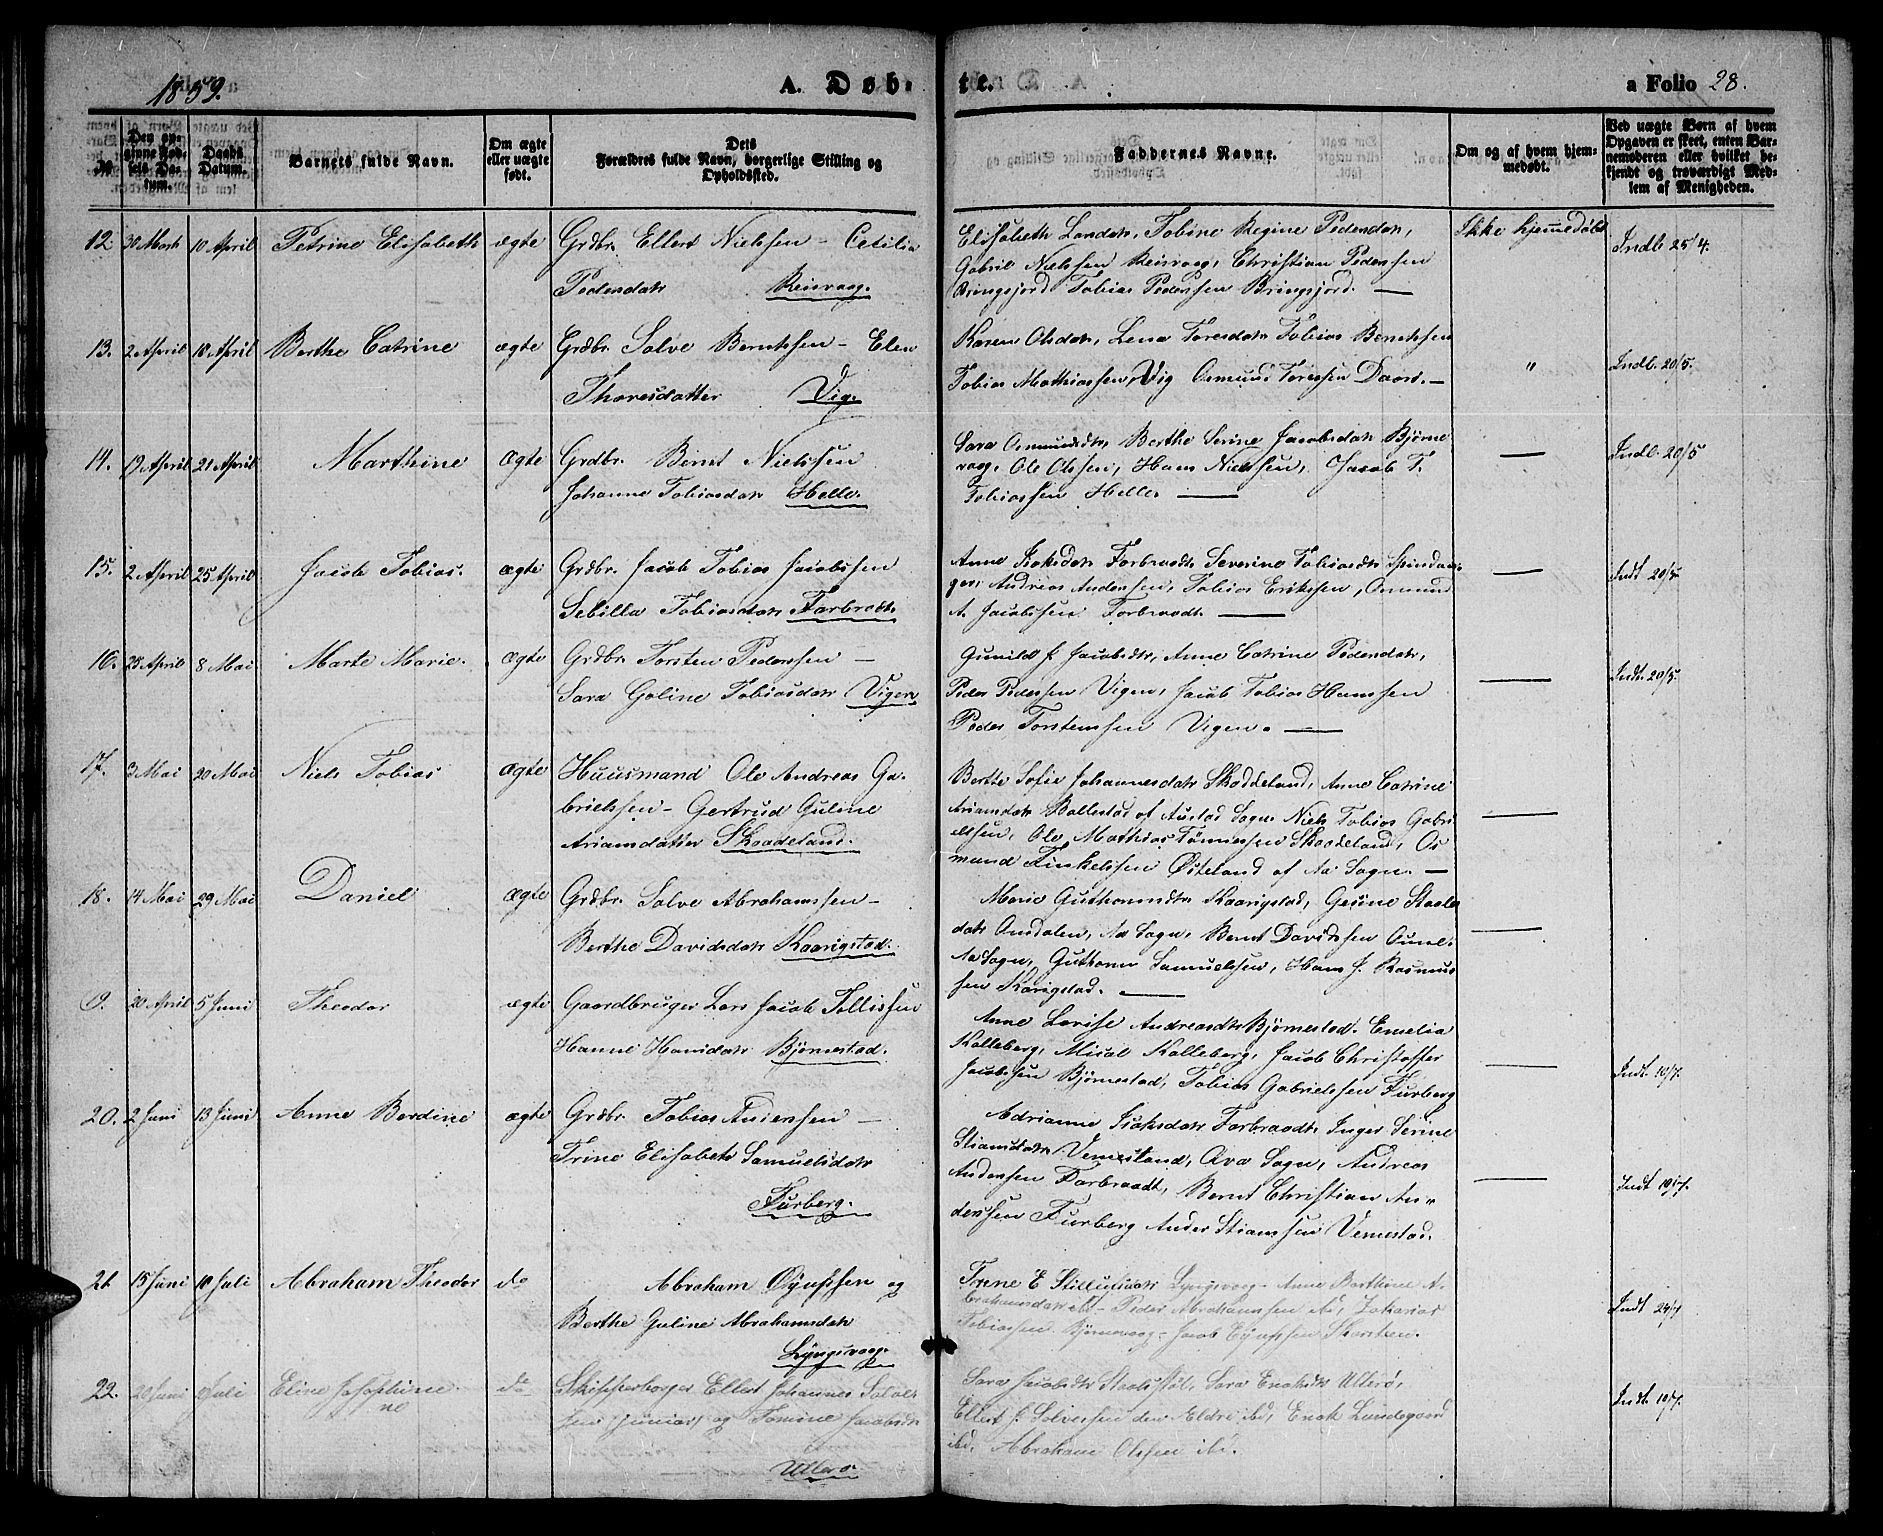 1859.
A. Døb-
te.
a Folio 28.
No
Den opgivne Fødsels Datum.
Daabs Datum.
Barnets fulde Navn.
Om ægte eller uægte født.
Dets Forældres fulde Navn, borgerlige Stilling og Opholdssted.
Faddernes Navne.
Om og af hvem hjemmedøbt.
Ved uægte Børn af hvem Opgaven er skeet, enten Barnemoderen eller hvilket bekjendt og troværdigt Medlem af Menigheden.
12. 30 Marts 10 April Petrine Elisabeth ægte Grdbr. Ellert Nielssen - Cecilia
Pedersdatr Reisvaag.
Elisabeth Larsdatr, Tobine Regine Pedersdatr,
Gabriel Nielssen Reisvaag, Christian Pederssen
Bringsjord Tobias Pederssen Bringsjord. —
Ikke hjemmedøbt
Indb. 25/4.
13. 2 April 18 April Berthe Catrine ægte Grdbr. Salve Berntssen - Elen
Thoresdatter Vig.
Karen Olsdatr, Lena Toresdatr Tobias Berntssen
Tobias Mathiassen, Vig Osmund Toressen Daard. —
"
Indb. 20/5.
14. 19 April 21 April Marthine ægte Grdbr. Bernt Nielssen
Johanne Tobiasdatr Helle.
Sara Osmundsdtr, Berthe Serine Jacobsdatr Bjørne
vaag, Ole Olssen, Hans Nielssen, Jacob T.
Tobiassen Helle. —
—
Indb. 20/5
15. 2 April 25 April Jacob Tobias. ægte Grdbr. Jacob Tobias Jacobssen
Sebilla Tobiasdatr Farbrodt.
Anne Isaksdatr Forbraadt, Severine Tobiasdtr Spindan
ger, Andreas Anderssen, Tobias Erikssen, Osmund
A. Jacobssen Forbraadt. —
—
Indt 20/5.
16. 25 April 8 Mai Marte Marie. ægte Grdbr. Torsten Pederssen —
Sara Goline Tobiasdatr Vigen
Gunild J. Jacobsdtr, Anne Catrine Pedersdatr,
Peder Pederssen Vigen, Jacob Tobias Hanssen
Peder Torstenssen Vigen. —
—
Indt. 20/5.
17. 3 Mai 20 Mai Niels Tobias ægte Huusmand Ole Andreas Ga-
brielssen - Gertrud Guline
Ariansdatter Skaadeland.
Berthe Sofie Johannesdatr Skaddeland, Anne Catrine
Ariansdatr Ballestad af Austad Sogn Niels Tobias Gabri
elssen, Ole Mathias Tønnessen Skaadeland, Os
mund Finkelssen Østeland af Aa Sogn. —
—
18. 14 Mai 29 Mai Daniel ægte Grdbr. Salve Abrahamssen -
Berthe Davidsdatr Kaarigstad.
Marie Guthormsdtr Kaarigstad, Gesine Staale
datr Omdalen, Aa Sogn, Bernt Davidssen Oune.
Aa Sogn, Guthorm Samuelssen, Hans J. Rasmus
sen Karigstad. —
—
19. 20 April 5 Juni Theodor ægte Gaardbruger Lars Jacob Tollissen
Hanne Hansdatr Bjørnestad.
Anne Lovise Andreasdtr Bjørnestad. Emelia
Kalleberg, Mical Kalleberg, Jacob Christoffer
Jacobssen Bjørnestad, Tobias Gabrielssen Furberg
—
Indt. 10/7.
20. 2 Juni 13 Juni Anne Berdine ægte Grdbr. Tobias Anderssen —
Trine Elisabeth Samuelsdatr
Furberg.
Adrianne Isaksdatr Farbraadt. Inger Serine
Stiansdatr Vemestand, Ava Sogn, Andreas
Anderssen Farbraadt, Bernt Christian An-
derssen Furberg Ander Stianssen Vemestad.
—
Indt 10/7.
21 15 Juni 10 Juli Abraham Theodor do Abraham Øjufssen og
Berthe Guline Abrahamsdatr
Lyngsvaag.
Trine E Lyngsvaag - Anne Berthine A-
brahamsdatr ibd - Peder Abrahamssen ibd, Zakarias
Tobiassen Bjørnevaag - Jacob Skarsten.
Indt 24/7
22. 20 Juni Juli Eline Josephine
ne
do Skipperborger Ellert Johannes Salve-
sen junior, og Tomine Jacobsdr
Ullerø
Sara Jacobsdtr Sara Enoksdtr Ullerø,
Ellert J. Solversen den Eldre ibd, Enok Lundegaard
ibd, Abraham Olssen ibd.
Indt. 10/7.